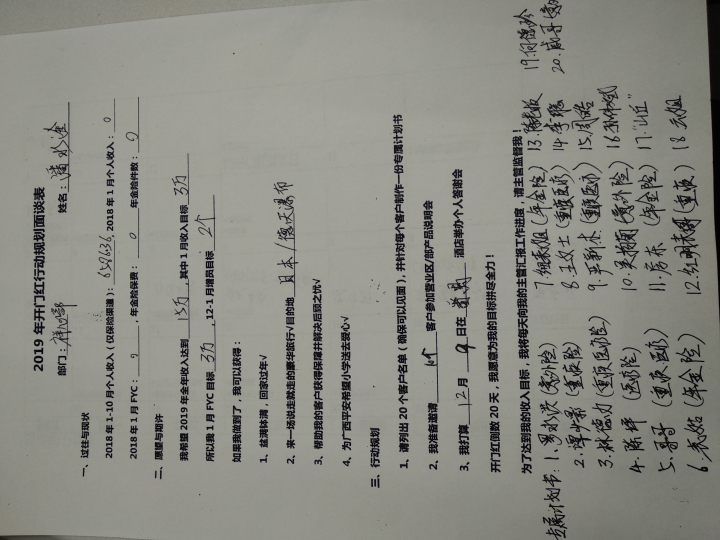 2019年开门红行动规划面谈表
部门： 姓名：潘
一、过往与现状
2018年1-10月个人收入（仅保险渠道）：659636，2018年1月个人收入：0
2018年1月FYC：0，年金险保费：0 年金险件数：0
二、愿望与期许
我希望2019年全年收入达到 15万，其中1月收入目标 3万
所以我1月FYC目标 3万，12-1月增员目标 2个
如果我做到了，我可以获得：
1、钵满钵满，回家过年√
2、来一场说走就走的豪华旅行√目的地 日本/德天瀑布
3、帮助我的客户获得保障并解决后顾之忧√
4、为广西平安希望小学送去爱心√
三、行动规划
1、请列出20个客户名单（确保可以见面），并针对每个客户制作一份专属计划书
2、我准备邀请 客户参加营业区/部产品说明会
3、我打算 12月 9日在 酒店举办个人答谢会
开门红倒数20天，我愿意为我的目标拼尽全力！
为了达到我的收入目标，我将每天向我的主管汇报工作进度，请主管监督我！
专属计划书：1、（意外险） 7、（年金险） 13、 19、
2、（重疾险） 8、王女士（重疾医疗） 14、李 20、
3、（重疾医疗险） 9、（重疾医疗） 15、周
4、陈（意外险） 10、（意外险） 16、
5、（重疾医疗） 11、房东（年金险） 17、"山丘"
6、（年金险） 12、（重疾） 18、姐